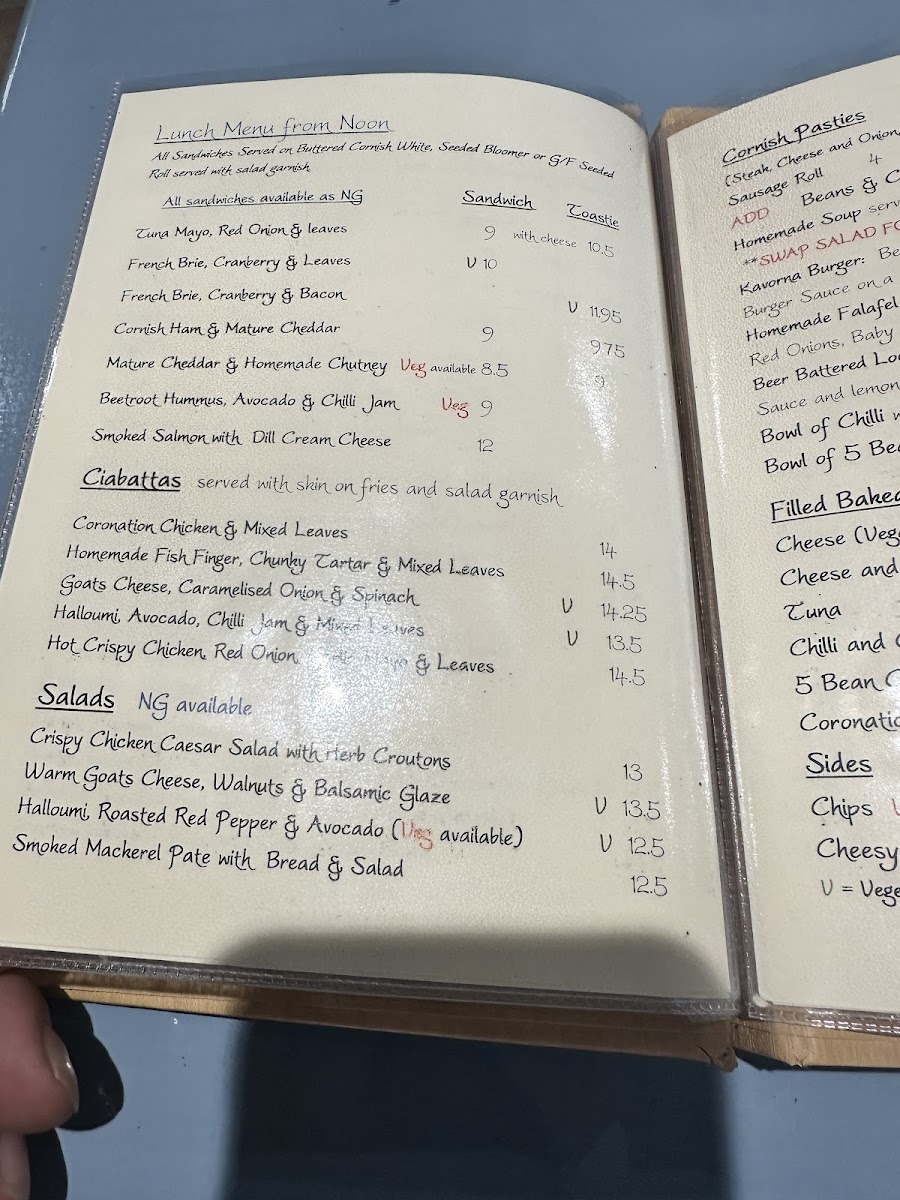 Lunch Menu from Noon
All Sandwiches Served on Buttered Cornish White, Seeded Bloomer or G/F Seeded
Roll served with salad garnish
All sandwiches available as NG Sandwich Toastie
Tuna Mayo, Red Onion & leaves 9 with cheese 10.5
French Brie, Cranberry & Leaves V 10
French Brie, Cranberry & Bacon V 11.95
Cornish Ham & Mature Cheddar 9 9.75
Mature Cheddar & Homemade Chutney Veg available 8.5 9
Beetroot Hummus, Avocado & Chilli Jam Veg 9
Smoked Salmon with Dill Cream Cheese 12
Ciabattas served with skin on fries and salad garnish
Coronation Chicken & Mixed Leaves 14
Homemade Fish Finger, Chunky Tartar & Mixed Leaves 14.5
Goats Cheese, Caramelised Onion & Spinach V 14.25
Halloumi, Avocado, Chilli Jam & Mixed Leaves V 13.5
Hot Crispy Chicken, Red Onion, & Leaves 14.5
Salads NG available
Crispy Chicken Caesar Salad with Herb Croutons 13
Warm Goats Cheese, Walnuts & Balsamic Glaze V 13.5
Halloumi, Roasted Red Pepper & Avocado (Veg available) V 12.5
Smoked Mackerel Pate with Bread & Salad 12.5
Cornish Pasties
(Steak, Cheese and Onion,
Sausage Roll 4
ADD Beans & C
Homemade Soup serv
**SWAP SALAD FO
Kavorna Burger: Be
Burger Sauce on a
Homemade Falafel
Red Onions, Baby
Beer Battered Lo
Sauce and lemon
Bowl of Chilli w
Bowl of 5 Bea
Filled Baked
Cheese (Veg
Cheese and
Tuna
Chilli and
5 Bean C
Coronatio
Sides
Chips
Cheesy
V = Vege